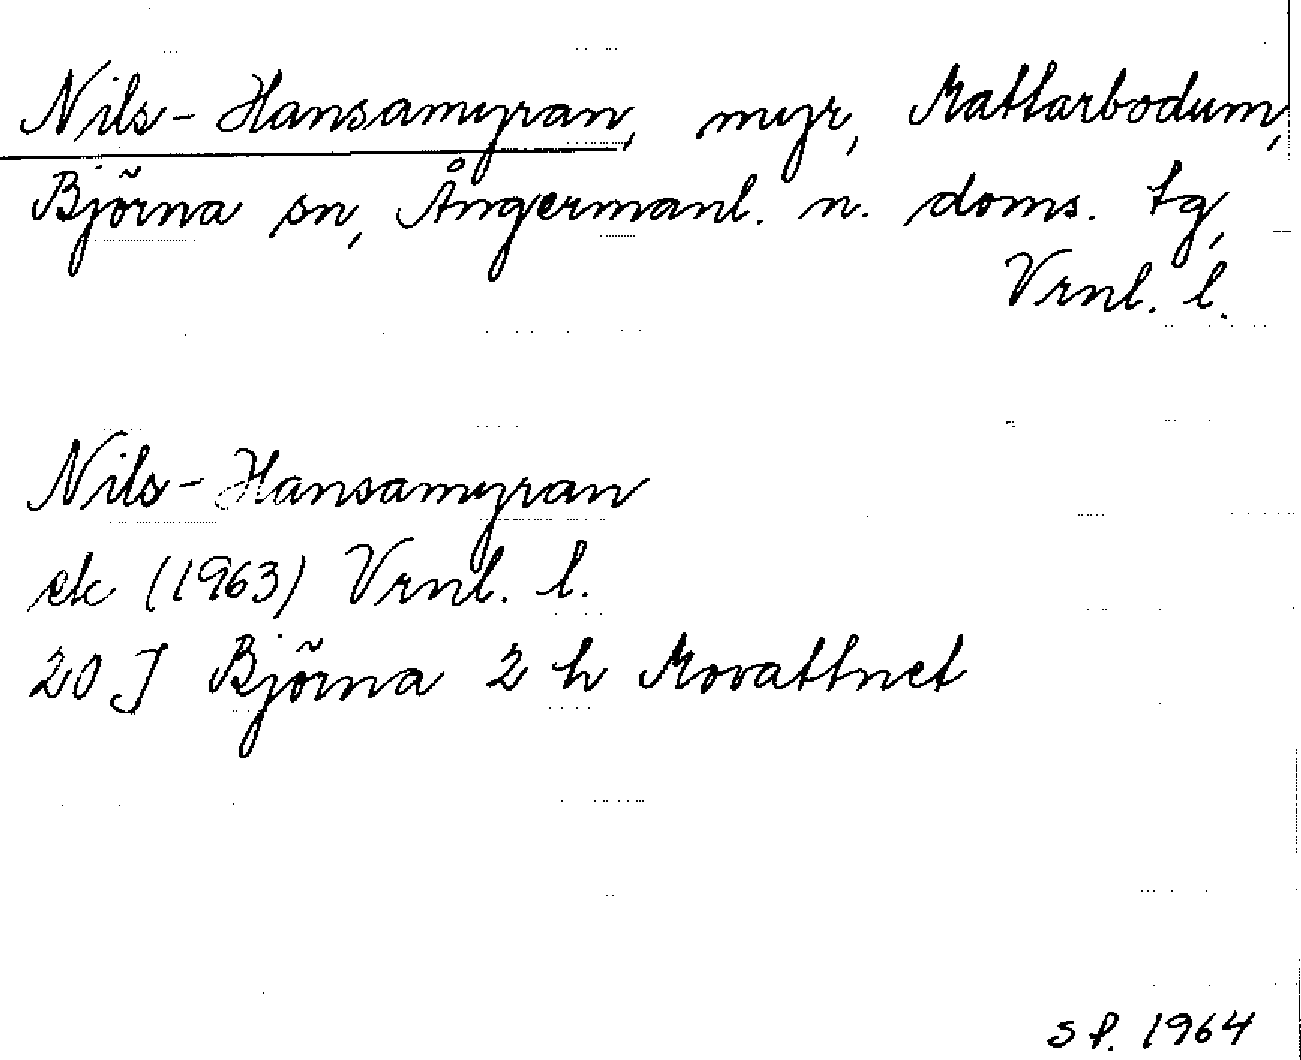 Nils-Hansamyran, myr, Mattarbodum,
Björna sn, Ångermanl. n. doms. tg,
Vrnl. l.
Nils-Hansamyran
ek (1963) Vrnl. l.
20 J Björna 2 h Movattnet
SP. 1964